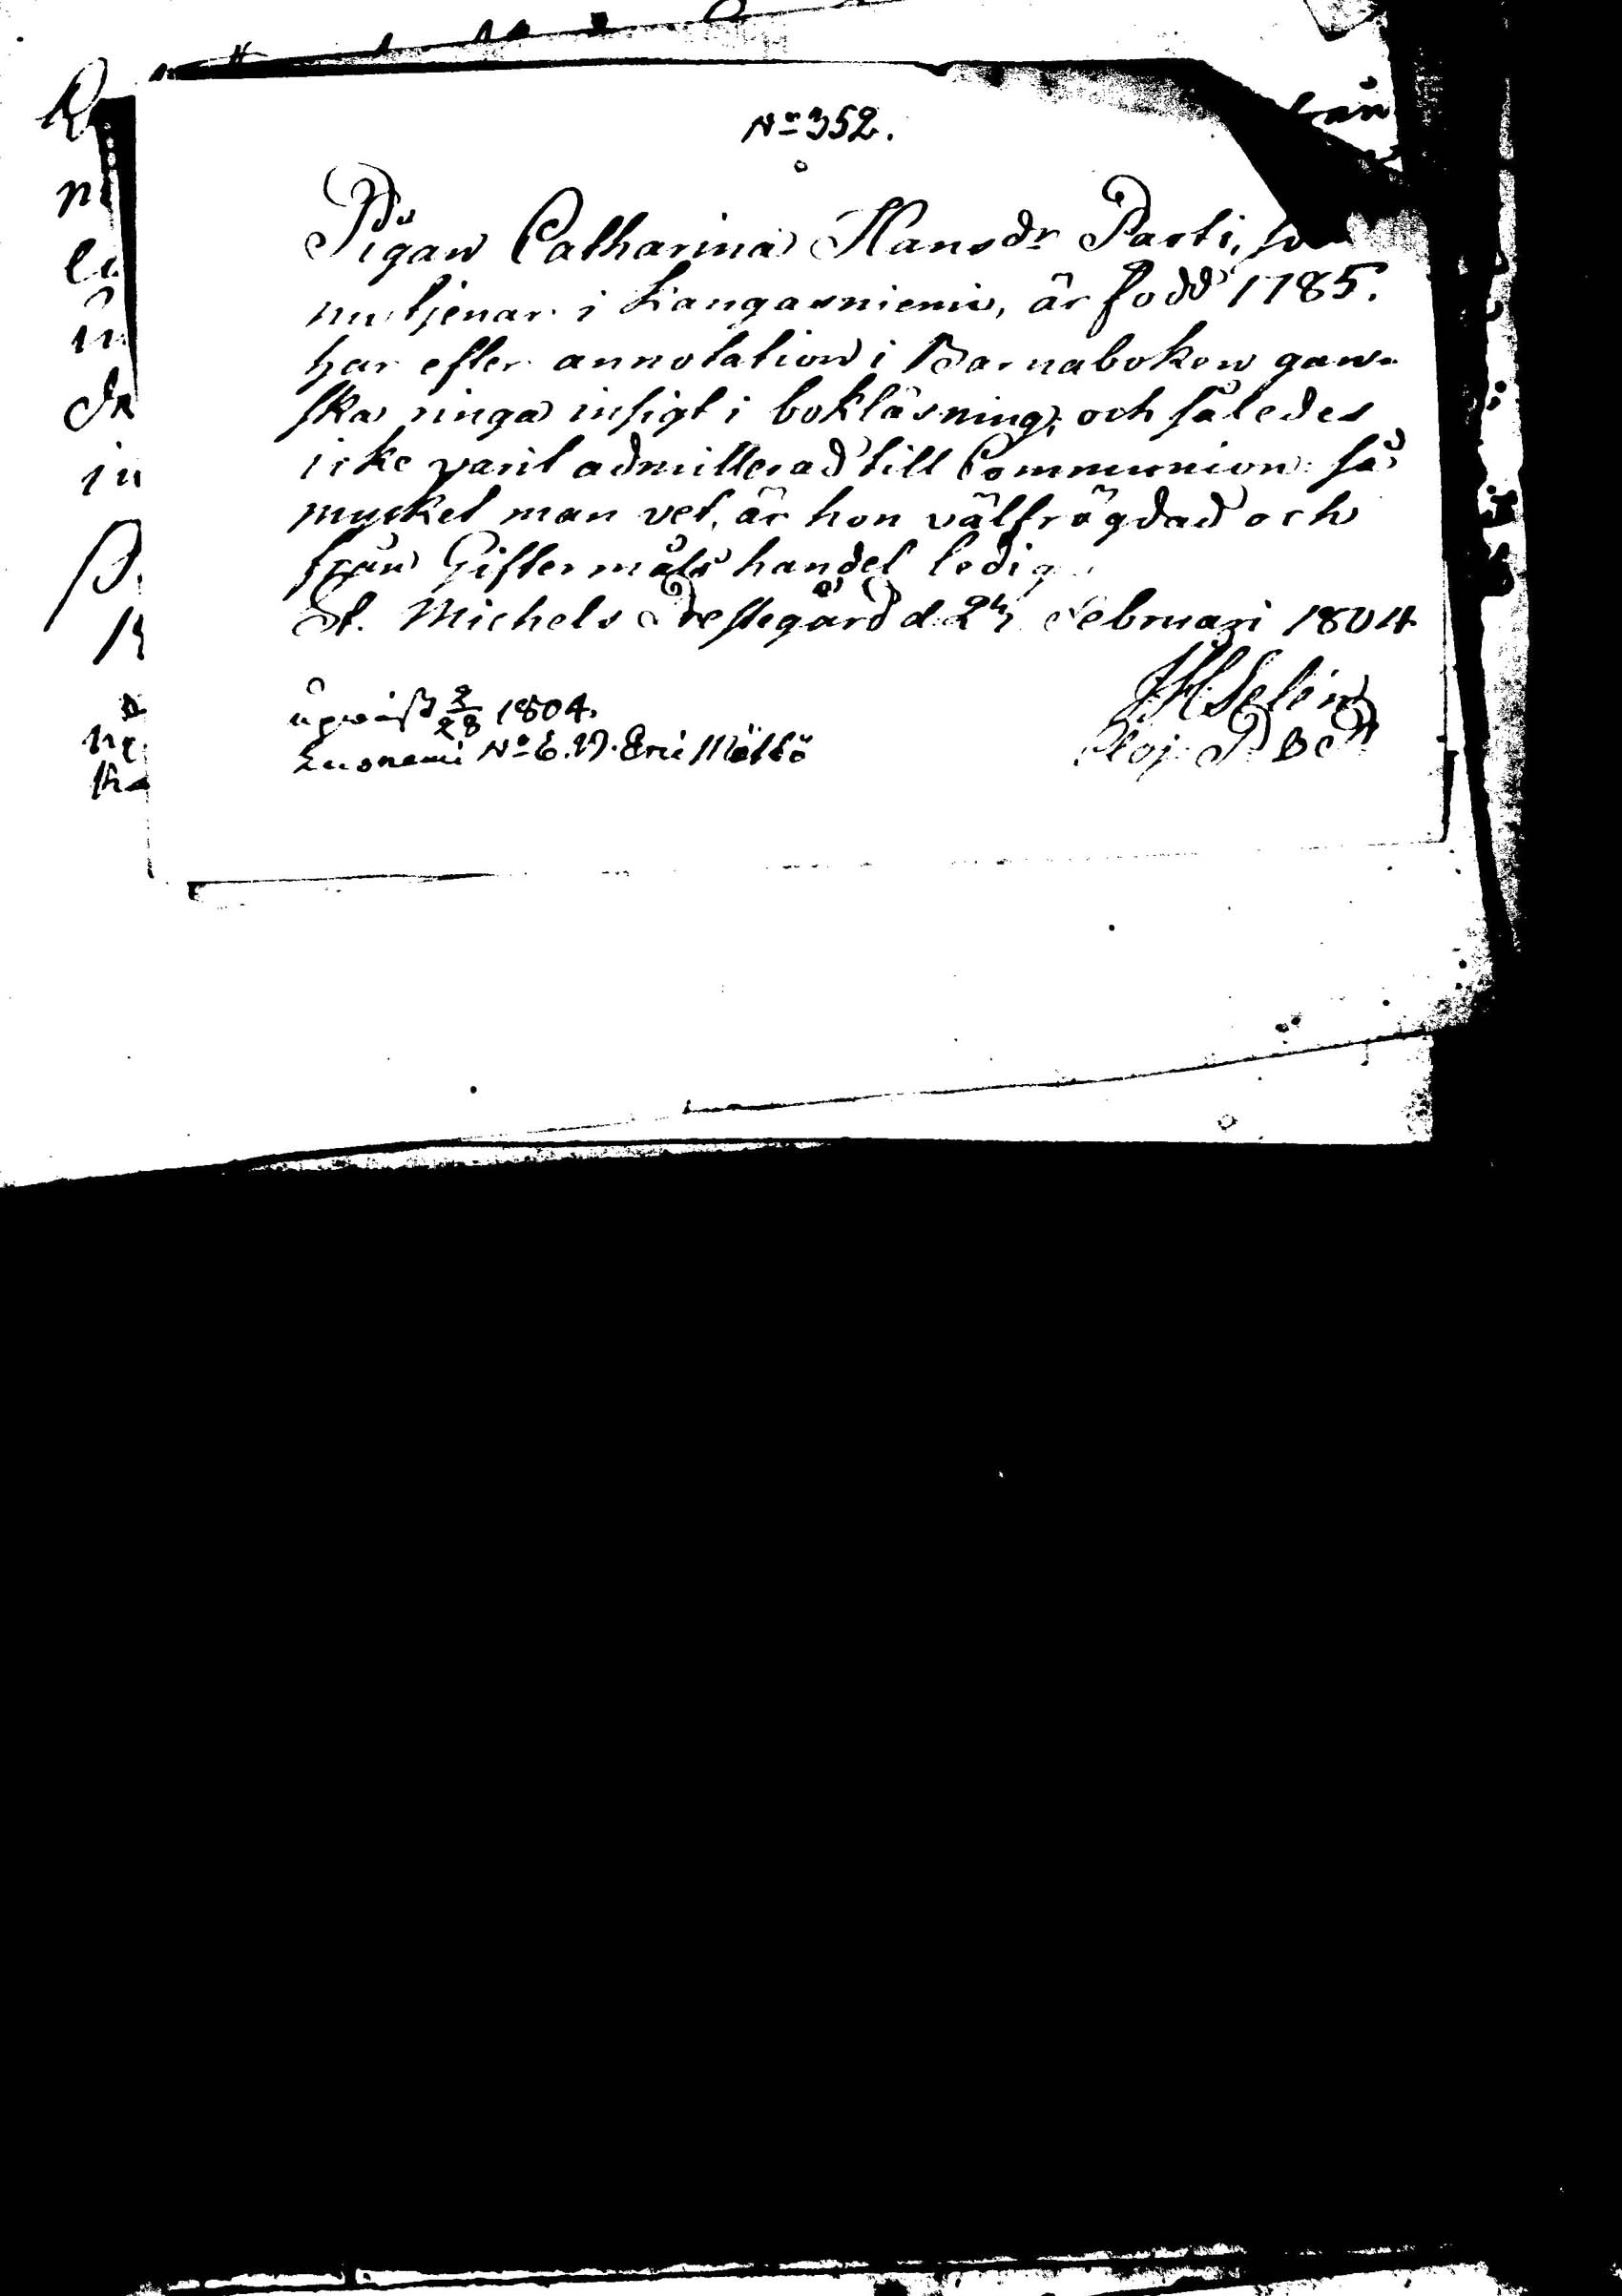 No 352.
Pigan Catharina Hansdr Parti, som
nu tjenar i Kangasniemi, är född 1785.
har efter annotation i Barnaboken gan-
ska ringa insigt i bokläsning, och således
icke varit admitterad till Communion: så
mycket man vet, är hon välfrägdad och
från Giftermåls handel ledig.
St. Michels Prestegård d. 24 Februari 1804
HSelin
upvist 3/28 1804.
No 6. Eric